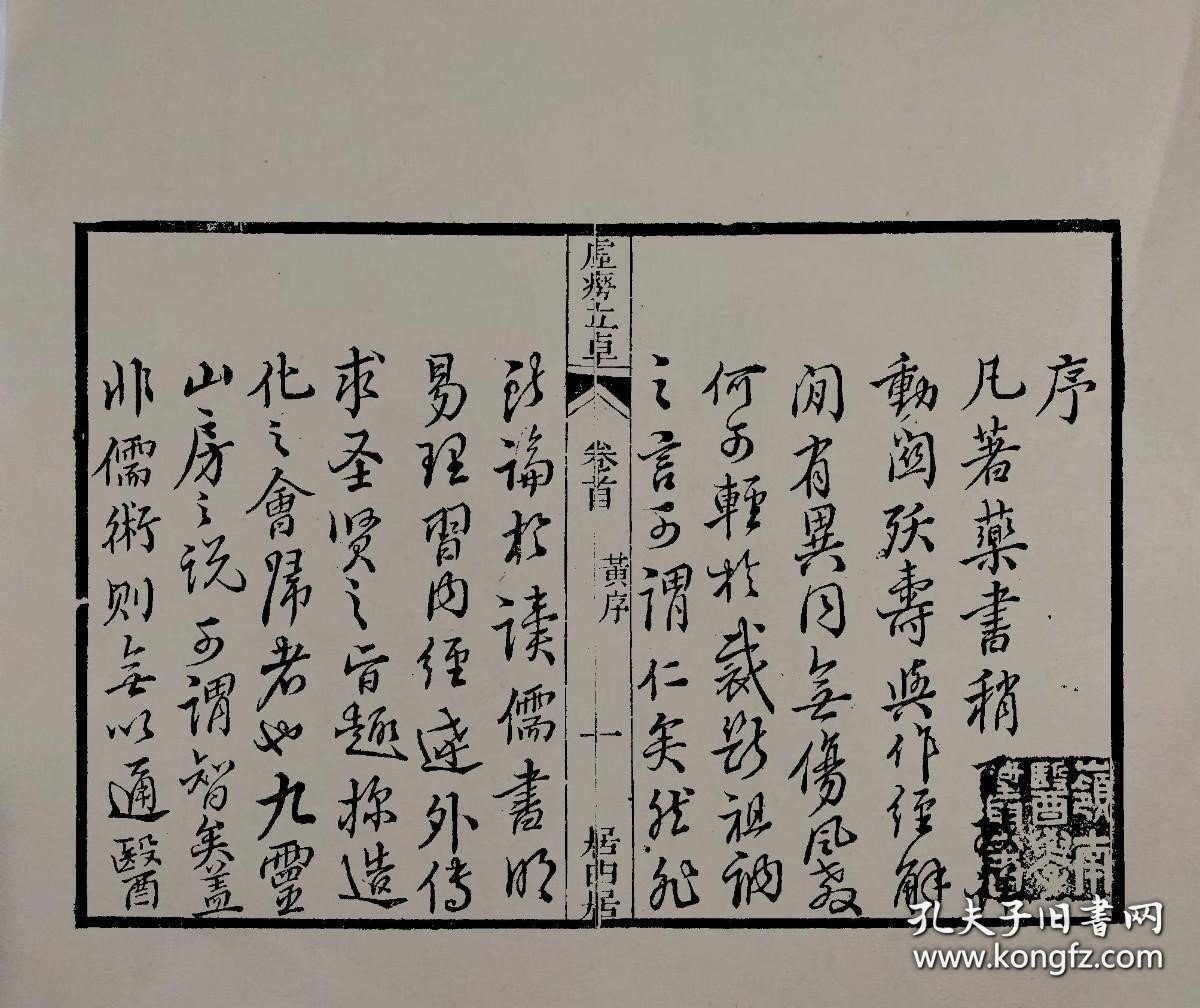 序
凡著藥書稍
動關殀壽與作經解
間有異同無傷風教
何可輕於裁斷祖訥
之言可謂仁矣然非
虛癆立卓
卷首
黃序
十
居由居
討論於讀儒書明
易理習內經述外傳
求圣贤之旨趣探造
化之會歸者也九靈
山房之说可謂智矣蓋
非儒術则無以通醫
嶺南
醫學
孔夫子旧書网
www.kongfz.com